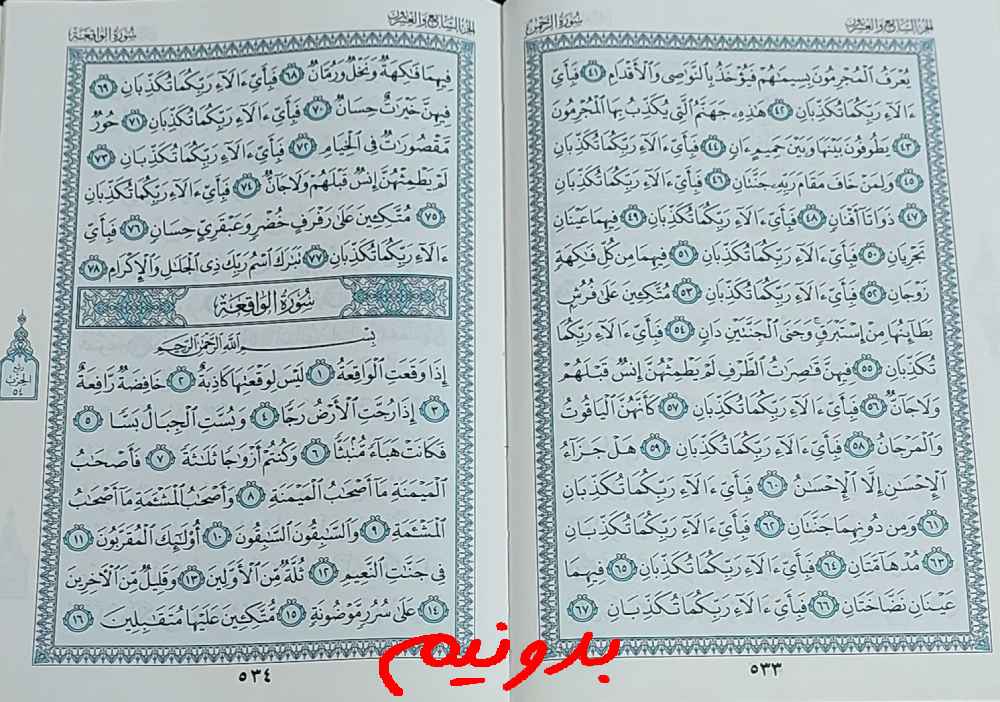 الجزء السابع والعشرون
سورة الرحمن
يُعْرَفُ الْمُجْرِمُونَ بِسِيمَاهُمْ فَيُؤْخَذُ بِالنَّوَاصِي وَالْأَقْدَامِ ٤١ فَبِأَيِّ
ءَالَاءِ رَبِّكُمَا تُكَذِّبَانِ ٤٢ هَٰذِهِ جَهَنَّمُ الَّتِي يُكَذِّبُ بِهَا الْمُجْرِمُونَ
٤٣ يَطُوفُونَ بَيْنَهَا وَبَيْنَ حَمِيمٍ ءَانٍ ٤٤ فَبِأَيِّ ءَالَاءِ رَبِّكُمَا تُكَذِّبَانِ
٤٥ وَلِمَنْ خَافَ مَقَامَ رَبِّهِ جَنَّتَانِ ٤٦ فَبِأَيِّ ءَالَاءِ رَبِّكُمَا تُكَذِّبَانِ
٤٧ ذَوَاتَا أَفْنَانٍ ٤٨ فَبِأَيِّ ءَالَاءِ رَبِّكُمَا تُكَذِّبَانِ ٤٩ فِيهِمَا عَيْنَانِ
تَجْرِيَانِ ٥٠ فَبِأَيِّ ءَالَاءِ رَبِّكُمَا تُكَذِّبَانِ ٥١ فِيهِمَا مِن كُلِّ فَٰكِهَةٍ
زَوْجَانِ ٥٢ فَبِأَيِّ ءَالَاءِ رَبِّكُمَا تُكَذِّبَانِ ٥٣ مُتَّكِـِٔينَ عَلَىٰ فُرُشٍ
بَطَائِنُهَا مِنْ إِسْتَبْرَقٍ وَجَنَى الْجَنَّتَيْنِ دَانٍ ٥٤ فَبِأَيِّ ءَالَاءِ رَبِّكُمَا
تُكَذِّبَانِ ٥٥ فِيهِنَّ قَٰصِرَٰتُ الطَّرْفِ لَمْ يَطْمِثْهُنَّ إِنسٌ قَبْلَهُمْ
وَلَا جَانٌّ ٥٦ فَبِأَيِّ ءَالَاءِ رَبِّكُمَا تُكَذِّبَانِ ٥٧ كَأَنَّهُنَّ الْيَاقُوتُ
وَالْمَرْجَانُ ٥٨ فَبِأَيِّ ءَالَاءِ رَبِّكُمَا تُكَذِّبَانِ ٥٩ هَلْ جَزَاءُ
الْإِحْسَٰنِ إِلَّا الْإِحْسَٰنُ ٦٠ فَبِأَيِّ ءَالَاءِ رَبِّكُمَا تُكَذِّبَانِ
٦١ وَمِن دُونِهِمَا جَنَّتَانِ ٦٢ فَبِأَيِّ ءَالَاءِ رَبِّكُمَا تُكَذِّبَانِ
٦٣ مُدْهَامَّتَانِ ٦٤ فَبِأَيِّ ءَالَاءِ رَبِّكُمَا تُكَذِّبَانِ ٦٥ فِيهِمَا
عَيْنَانِ نَضَّاخَتَانِ ٦٦ فَبِأَيِّ ءَالَاءِ رَبِّكُمَا تُكَذِّبَانِ ٦٧
٥٣٣
الجزء السابع والعشرون
سورة الواقعة
فِيهِمَا فَٰكِهَةٌ وَنَخْلٌ وَرُمَّانٌ ٦٨ فَبِأَيِّ ءَالَاءِ رَبِّكُمَا تُكَذِّبَانِ ٦٩
فِيهِنَّ خَيْرَٰتٌ حِسَانٌ ٧٠ فَبِأَيِّ ءَالَاءِ رَبِّكُمَا تُكَذِّبَانِ ٧١ حُورٌ
مَّقْصُورَٰتٌ فِي الْخِيَامِ ٧٢ فَبِأَيِّ ءَالَاءِ رَبِّكُمَا تُكَذِّبَانِ ٧٣
لَمْ يَطْمِثْهُنَّ إِنسٌ قَبْلَهُمْ وَلَا جَانٌّ ٧٤ فَبِأَيِّ ءَالَاءِ رَبِّكُمَا تُكَذِّبَانِ
٧٥ مُتَّكِـِٔينَ عَلَىٰ رَفْرَفٍ خُضْرٍ وَعَبْقَرِيٍّ حِسَانٍ ٧٦ فَبِأَيِّ
ءَالَاءِ رَبِّكُمَا تُكَذِّبَانِ ٧٧ تَبَٰرَكَ اسْمُ رَبِّكَ ذِي الْجَلَٰلِ وَالْإِكْرَامِ ٧٨
سورة الواقعة
بِسْمِ اللَّهِ الرَّحْمَٰنِ الرَّحِيمِ
إِذَا وَقَعَتِ الْوَاقِعَةُ ١ لَيْسَ لِوَقْعَتِهَا كَاذِبَةٌ ٢ خَافِضَةٌ رَّافِعَةٌ
٣ إِذَا رُجَّتِ الْأَرْضُ رَجًّا ٤ وَبُسَّتِ الْجِبَالُ بَسًّا ٥
فَكَانَتْ هَبَاءً مُّنبَثًّا ٦ وَكُنتُمْ أَزْوَٰجًا ثَلَٰثَةً ٧ فَأَصْحَٰبُ
الْمَيْمَنَةِ مَا أَصْحَٰبُ الْمَيْمَنَةِ ٨ وَأَصْحَٰبُ الْمَشْـَٔمَةِ مَا أَصْحَٰبُ
الْمَشْـَٔمَةِ ٩ وَالسَّٰبِقُونَ السَّٰبِقُونَ ١٠ أُولَٰئِكَ الْمُقَرَّبُونَ ١١
فِي جَنَّٰتِ النَّعِيمِ ١٢ ثُلَّةٌ مِّنَ الْأَوَّلِينَ ١٣ وَقَلِيلٌ مِّنَ الْآخِرِينَ
١٤ عَلَىٰ سُرُرٍ مَّوْضُونَةٍ ١٥ مُّتَّكِـِٔينَ عَلَيْهَا مُتَقَٰبِلِينَ ١٦
٥٣٤
ربع
الحزب
٥٤
بدونیم